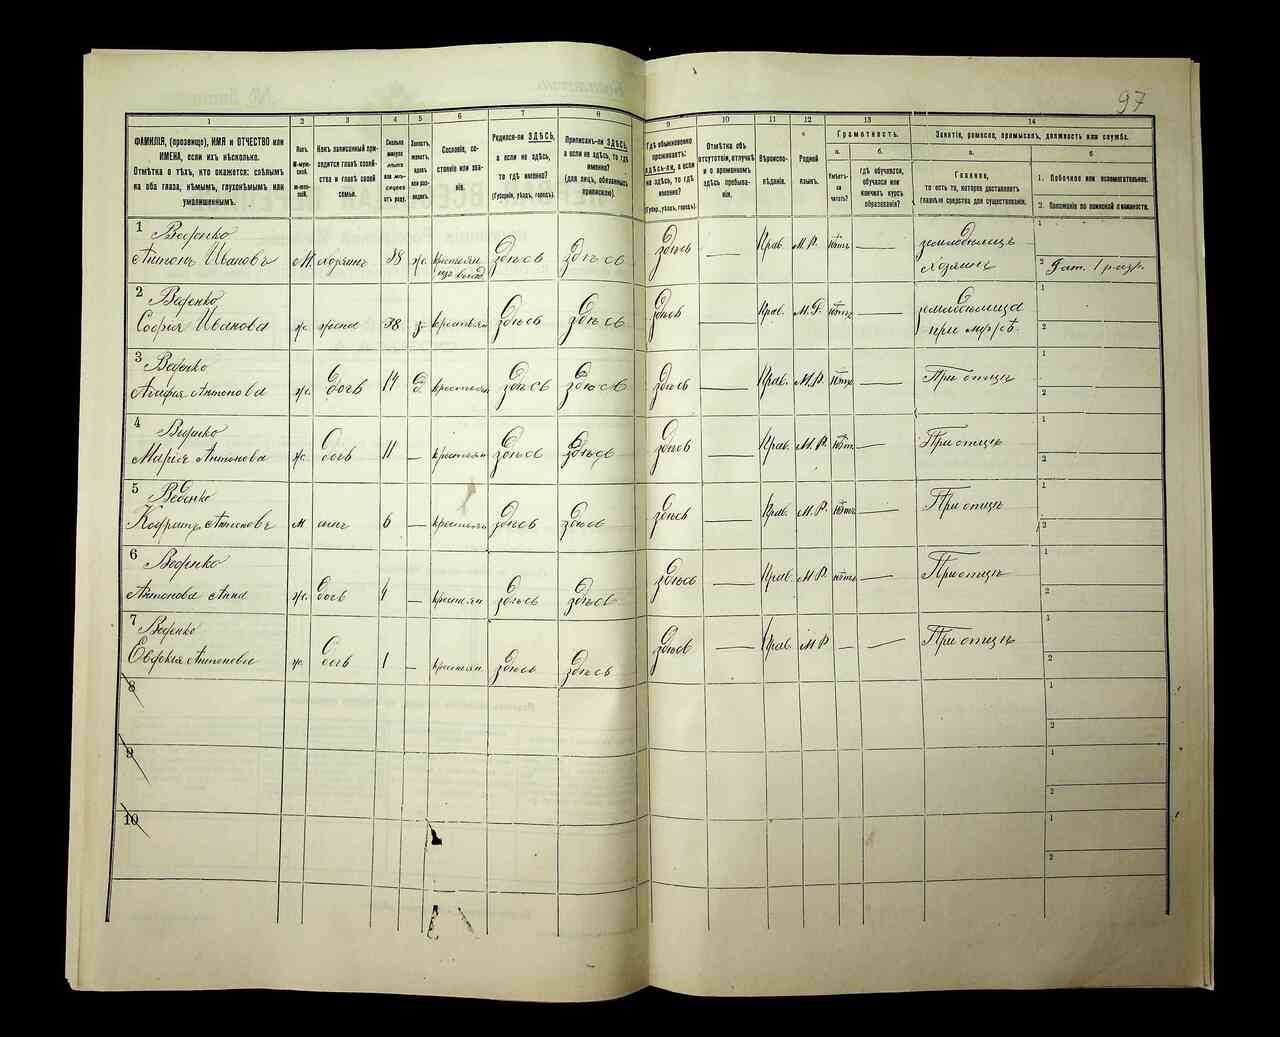 97
1 2 3 4 5 6 7 8 9 10 11 12 13 14
ФАМИЛІЯ, (прозвище), ИМЯ и ОТЧЕСТВО или
ИМЕНА, если ихъ нѣсколько.
Отмѣтка о тѣхъ, кто окажется: слѣпымъ
на оба глаза, нѣмымъ, глухонѣмымъ или
умалишеннымъ.
Полъ.
М-муж-
ской.
Ж-жен-
скій.
Какъ записанный при-
ходится главѣ хозяй-
ства и главѣ своей
семьи.
Сколько
минуло
лѣтъ
или мѣ-
сяцевъ
отъ роду.
Холостъ,
женатъ,
вдовъ
или раз-
веденъ.
Сословіе, со-
стояніе или зва-
ніе.
Родился-ли ЗДѢСЬ,
а если не здѣсь,
то гдѣ именно?
(Губернія, уѣздъ, городъ).
Приписанъ-ли ЗДѢСЬ,
а если не здѣсь, то гдѣ
именно?
(для лицъ, обязанныхъ
припискою).
Гдѣ обыкновенно
проживаетъ:
здѣсь-ли, а если
не здѣсь, то гдѣ
именно?
(Губер., уѣздъ, городъ).
Отмѣтка объ
отсутствіи, отлучкѣ
и о временномъ
здѣсь пребыва-
ніи.
Вѣроиспо-
вѣданіе.
Родной
языкъ.
Грамотность.
а. б.
Умѣетъ-
ли
читать?
Гдѣ обучается,
обучался или
кончилъ курсъ
образованія?
Занятіе, ремесло, промыселъ, должность или служба.
а. б
Главное,
то есть то, которое доставляетъ
главныя средства для существованія.
1. Побочное или вспомогательное.
2. Положеніе по воинской повинности.
1 Веденко
Антонъ Ивановъ М. хозяинъ 38 ж. крестьян здѣсь здѣсь здѣсь — Прав. М.Р. нѣтъ — земледѣлецъ 1
изъ влад. хозяинъ 2 Рат. 1 разр.
2 Веденко
Софія Иванова ж. жена 38 з. крестьян здѣсь здѣсь здѣсь — Прав. М.Р. нѣтъ — земледѣлица 1
при мужѣ 2
3 Веденко
Агафія Антонова ж. дочь 14 д. крестьян здѣсь здѣсь здѣсь — Прав. М.Р. нѣтъ — При отцѣ 1
2
4 Веденко
Марія Антонова ж. дочь 11 — крестьян здѣсь здѣсь здѣсь — Прав. М.Р. нѣтъ — При отцѣ 1
2
5 Веденко
Антоновъ м сынъ 6 — крестьян здѣсь здѣсь здѣсь — Прав. М.Р. нѣтъ — При отцѣ 1
2
6 Веденко
Антонова Анна ж. дочь 4 — крестьян здѣсь здѣсь здѣсь — Прав. М.Р. нѣтъ — При отцѣ 1
2
7 Веденко
Евфокія Антонова ж. дочь 1 — крестьян здѣсь здѣсь здѣсь — Прав. М Р — — При отцѣ 1
2
8 1
2
9 1
2
10 1
2